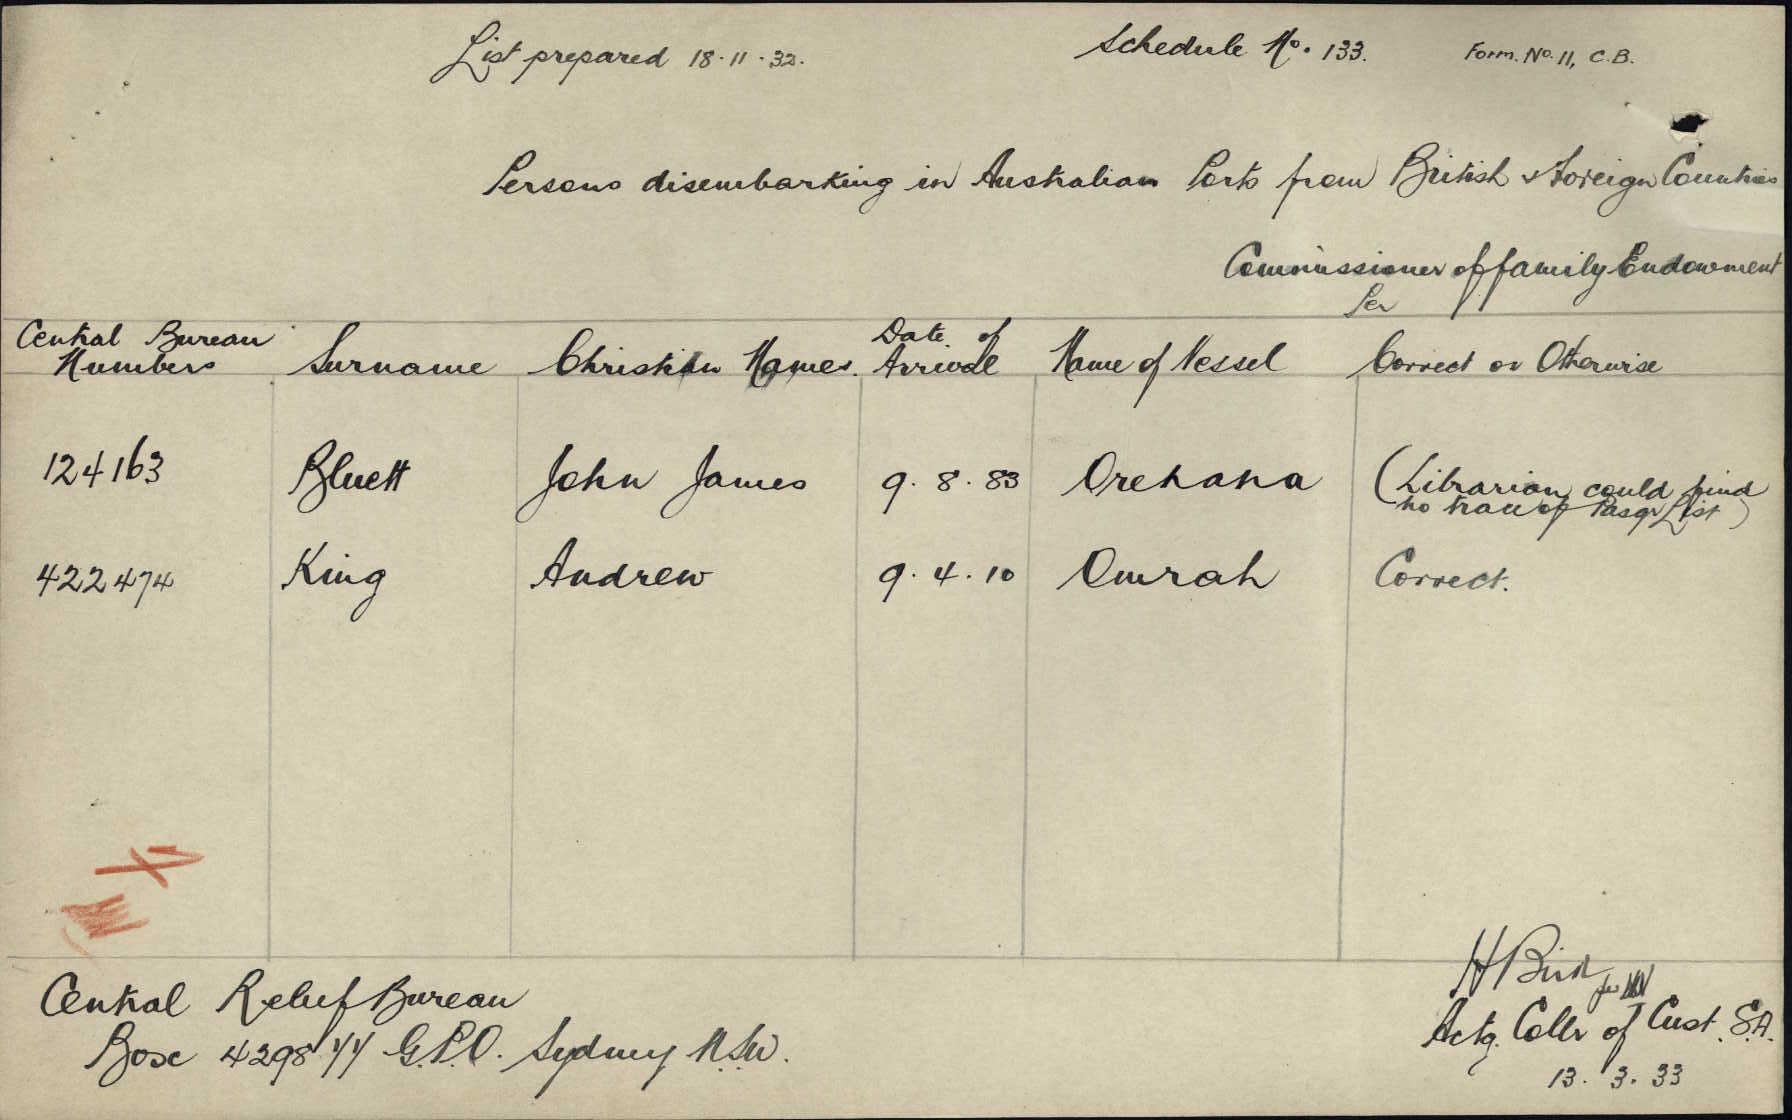 List prepared 18.11.32.
Schedule No. 133.
Form. No. 11, C.B.
Persons disembarking in Australian Ports from British & Foreign Countries
Commissioner of family Endowment
Per
Central Bureau Numbers
Surname
Christian Names.
Date of Arrival
Name of Vessel
Correct or Otherwise
124163 Bluett John James 9.8.83 Orehana (Librarian could find
no trace of Pasgr List)
422474 King Andrew 9.4.10 Omrah Correct.
Central Relief Bureau
Box 4298 YY G.P.O. Sydney N.S.W.
H Bird
Actg. Collr of Cust. S.A.
13.3.33